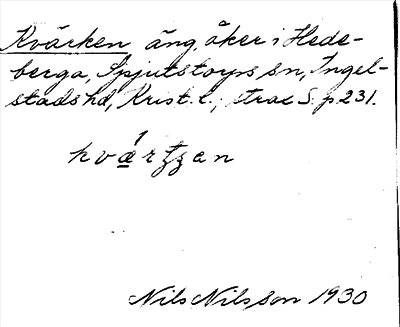 Kvärken äng, åker i Hede-
berga, Spjutstorps sn, Ingel-
stads hd, Krist. l.; trac S. p 231.
Nils Nilsson 1930